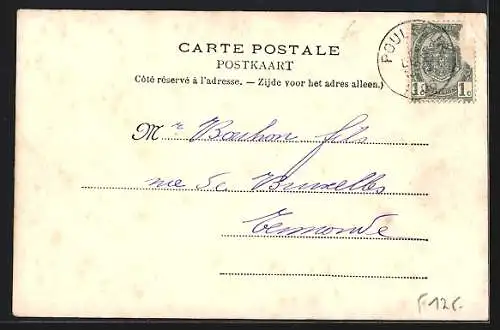 CARTE POSTALE
POSTKAART
Côté réservé à l'adresse. — Zijde voor het adres alleen.)
POUL
1c 1c
Mr Bachon fils
rue de Bruxelles
Termonde
F12F.